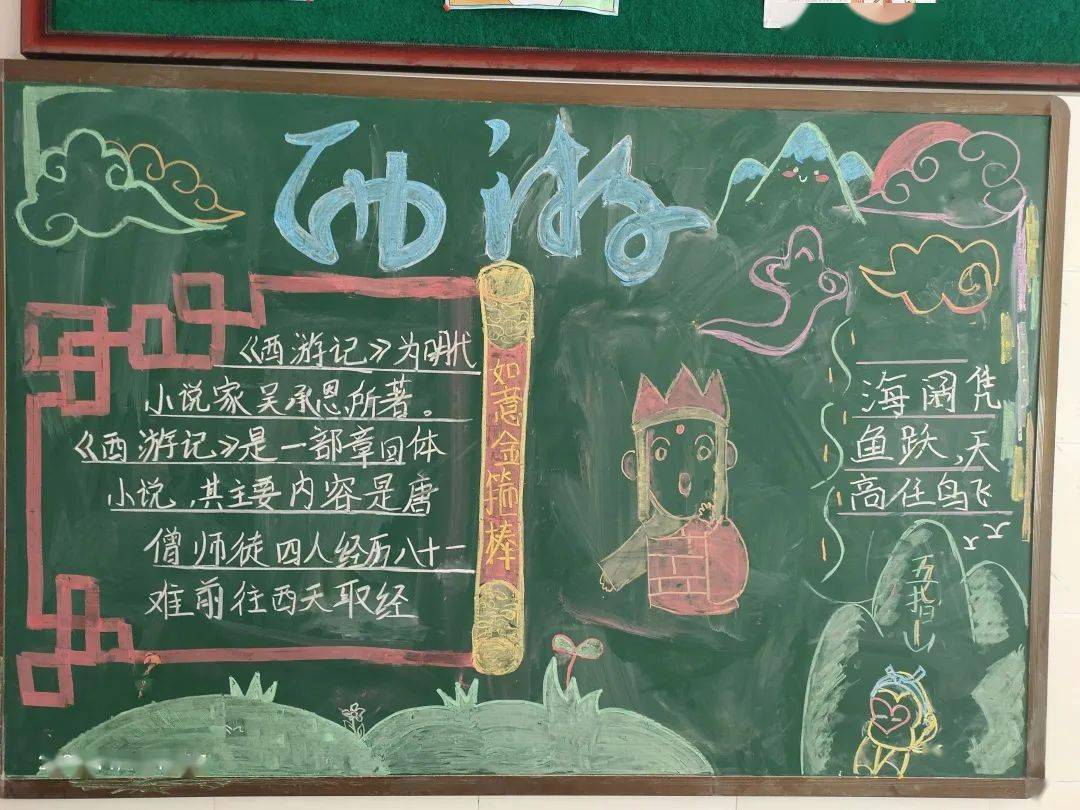 西游
《西游记》为明代
小说家吴承恩所著。
《西游记》是一部章回体
小说，其主要内容是唐
僧师徒四人经历八十一
难前往西天取经
如意金箍棒
海阔凭
鱼跃，天
高任鸟飞
五指山